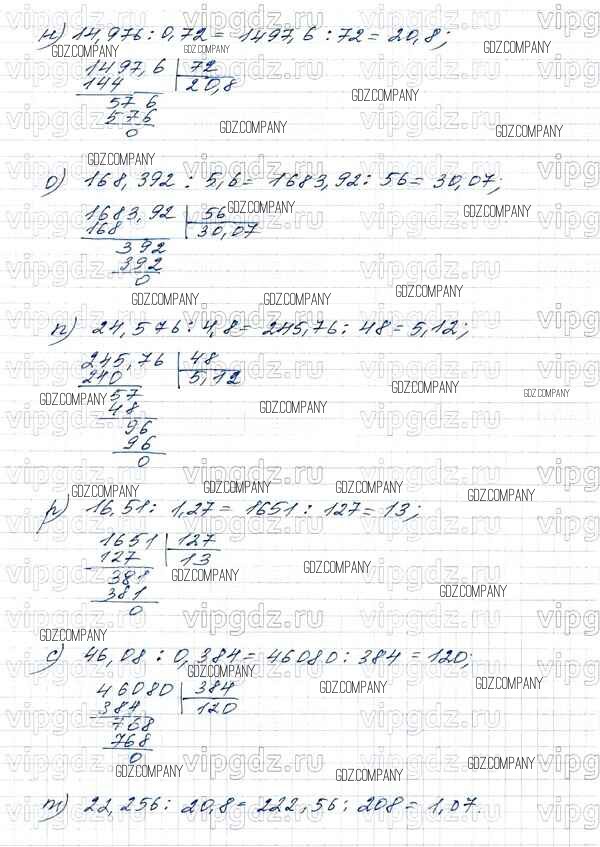 н) 14,976 : 0,72 = 1497,6 : 72 = 20,8;
1497,6 | 72
144 | 20,8
57 6
57 6
0
о) 168,392 : 5,6 = 1683,92 : 56 = 30,07;
1683,92 | 56
168 | 30,07
392
392
0
п) 24,576 : 4,8 = 245,76 : 48 = 5,12;
245,76 | 48
240 | 5,12
57
48
96
96
0
р) 16,51 : 1,27 = 1651 : 127 = 13;
1651 | 127
127 | 13
381
381
0
с) 46,08 : 0,384 = 46080 : 384 = 120;
46080 | 384
384 | 120
768
768
0
т) 22,256 : 20,8 = 222,56 : 208 = 1,07.
vipgdz.ru
GDZ.COMPANY